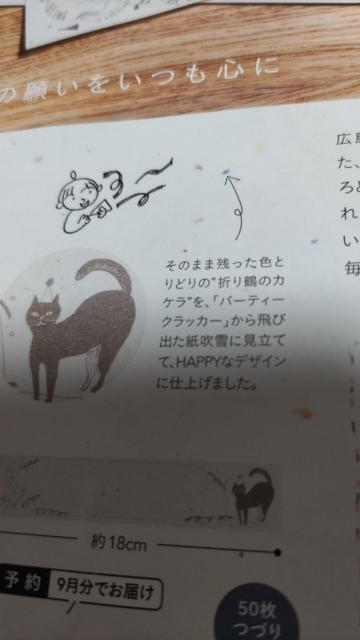 の願いをいつも心に
広島
た、
ろと
れ
い
毎
そのまま残った色と
りどりの“折り鶴のカ
ケラ”を、「パーティー
クラッカー」から飛び
出た紙吹雪に見立て
て、HAPPYなデザイン
に仕上げました。
約18cm
予約 9月分でお届け
50枚
つづり